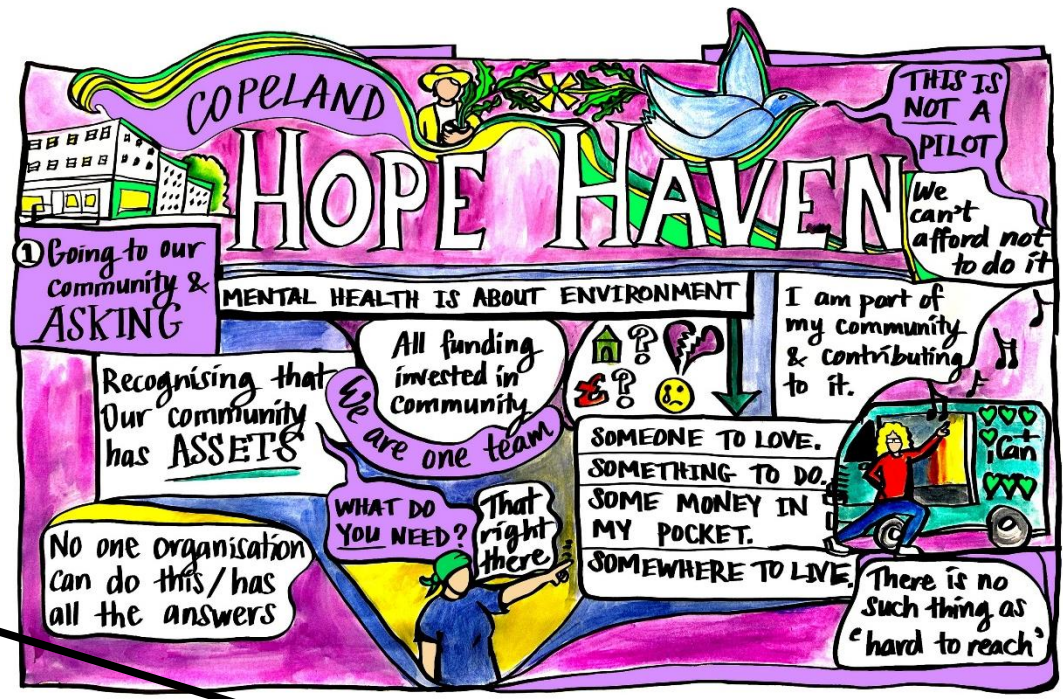 COPELAND
HOPE HAVEN
THIS IS
NOT A
PILOT
We
can't
afford not
to do it
① Going to our
community &
ASKING
MENTAL HEALTH IS ABOUT ENVIRONMENT
Recognising that
Our community
has ASSETS
All funding
invested in
community
We are one team
? 
£?
I am part of
my community
& contributing
to it.
iCan
SOMEONE TO LOVE.
SOMETHING TO DO.
SOME MONEY IN
MY POCKET.
SOMEWHERE TO LIVE.
WHAT DO
YOU NEED?
That
right
there
No one organisation
can do this/has
all the answers
There is no
such thing as
'hard to reach'